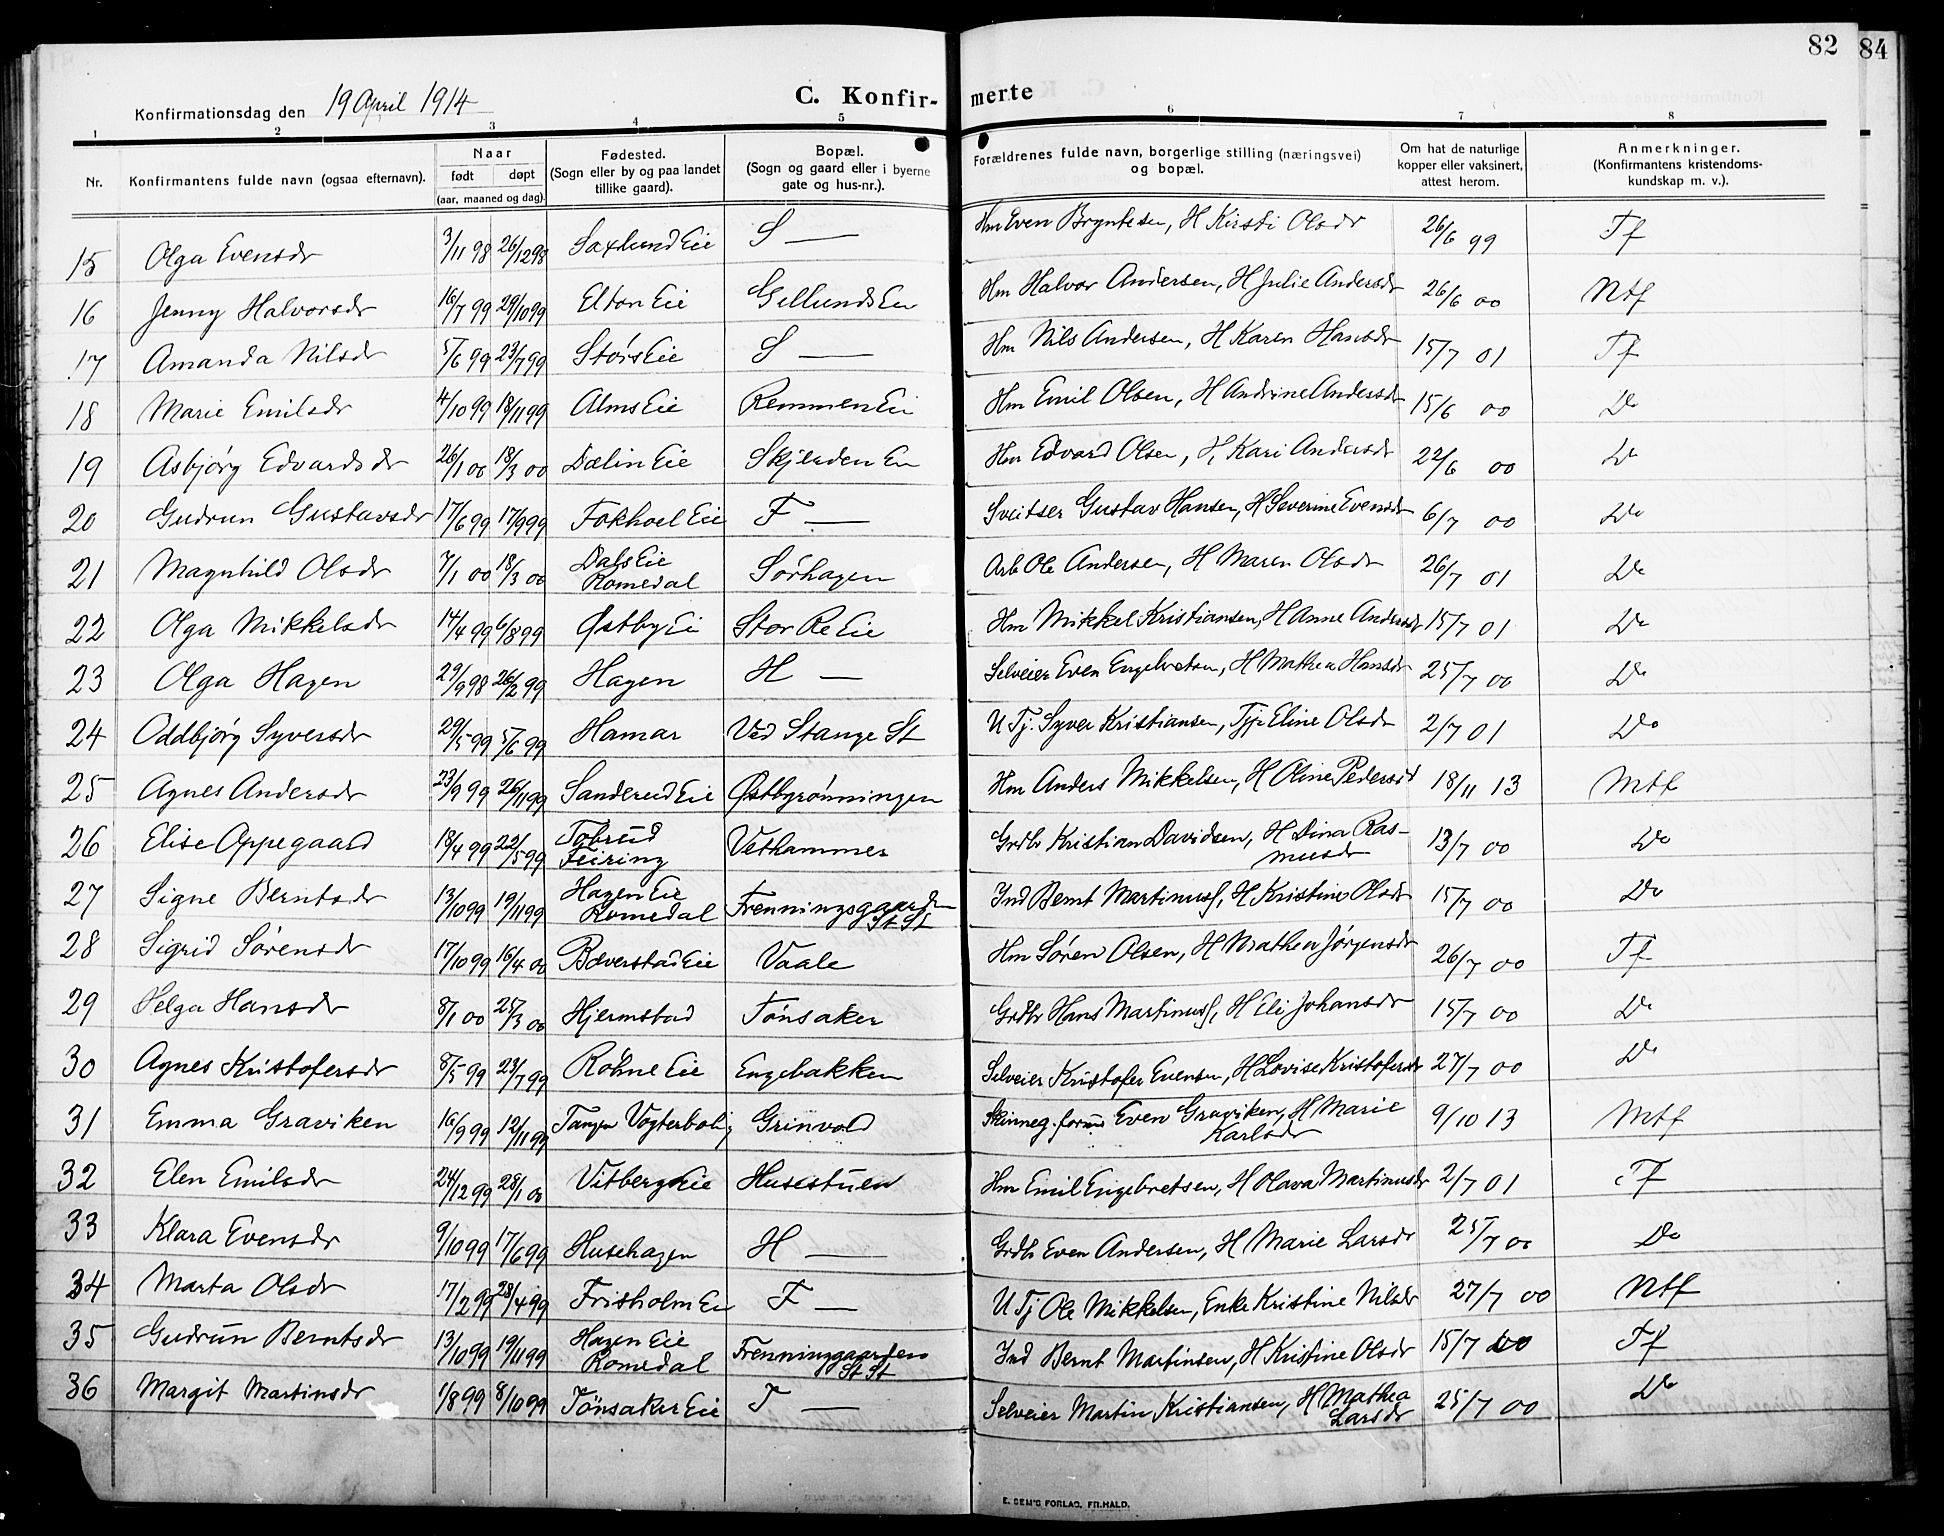 82 84
Konfirmationsdag den 19 April 1914
C. Konfir- merte
1 2 3 4 5 6 7 8
Nr. Konfirmantens fulde navn (ogsaa efternavn). Naar født døpt (aar, maaned og dag). Fødested. (Sogn eller by og paa landet tillike gaard). Bopæl. (Sogn og gaard eller i byerne gate og hus-nr.). Forældrenes fulde navn, borgerlige stilling (næringsvei) og bopæl. Om hat de naturlige kopper eller vaksinert, attest herom. Anmerkninger. (Konfirmantens kristendoms-kundskap m. v.).
15 Olga Evensdr 3/11 98 26/12 98 Saxlund Eie S — Hm Even Bryntesen, H Kirsti Olsdr 26/6 99 Tf
16 Jenny Halvorsdr 16/7 99 29/10 99 Elton Eie Gillunds Eie Hm Halvor Andersen, H Julie Andersdr 26/6 00 Ntf
17 Amanda Nilsdr 5/6 99 23/7 99 Störs Eie S — Hm Nils Andersen, H Karen Hansdr 15/7 01 Tf
18 Marie Emilsdr 4/10 99 18/11 99 Alms Eie Remmen Ei Hm Emil Olsen, H Andrine Andersdr 15/6 00 Do
19 Asbjørg Edvardsdr 26/1 00 18/3 00 Dælin Eie Skjerden Eie Hm Edvard Olsen, H Kari Andersdr 22/6 00 Do
20 Gudrun Gustavsdr 17/6 99 17/9 99 Fokhoel Eie F — Sveitser Gustav Hansen, H Severine Evensdr 6/7 00 Do
21 Magnhild Olsdr 7/1 00 18/3 00 Dals Eie Romedal Sørhagen Arb Ole Andersen, H Maren Olsdr 26/7 01 Do
22 Olga Mikkelsdr 14/4 99 6/8 99 Østby Ei Stor Re Eie Hm Mikkel Kristiansen, H Anne Andersdr 15/7 01 Do
23 Olga Hagen 29/9 98 26/2 99 Hagen H — Selveier Even Engebretsen, H Mathea Hansdr 25/7 00 Do
24 Oddbjørg Syversdr 29/5 99 5/6 99 Hamar Ved Stange St U Tj. Syver Kristiansen, Tjp Eline Olsdr 2/7 01 Do
25 Agnes Andersdr 23/9 99 26/11 99 Sanderud Eie Østbyrønningen Hm Anders Mikkelsen, H Oline Pedersdr 18/11 13 Mtf
26 Elise Oppegaard 18/4 99 22/5 99 Tobrud Feiring Vethammer Grdbr Kristian Davidsen, H Dina Ras-musdr 13/7 00 Do
27 Signe Berntsdr 13/10 99 19/11 99 Hagen Eie Romedal Frenningsgaarden St St Ind Bernt Martinus, H Kristine Olsdr 15/7 00 Do
28 Sigrid Sørensdr 17/10 99 16/4 00 Bæverstad Eie Vaale Hm Søren Olsen, H Mathea Jørgensdr 26/7 00 Tf
29 Helga Hansdr 8/1 00 25/3 00 Hjermstad Tønsaker Grdbr Hans Martinus, H Eli Johansdr 15/7 00 Do
30 Agnes Kristofersdr 8/5 99 23/7 99 Röhne Eie Engebakken Selveier Kristofer Evensen, H Lovise Kristofersdr 27/7 00 Do
31 Emma Graviken 16/9 99 12/11 99 Tangen Vogterbolig Grinvold Skinneg. form Even Graviken, H Marie Karlsdr 9/10 13 Mtf
32 Elen Emilsdr 24/12 99 28/1 00 Vitberg Eie Husestuen Hm Emil Engebretsen, H Olava Martinusdr 2/7 01 Tf
33 Klara Evensdr 9/10 99 17/6 99 Husehagen H — Grdbr Even Andersen, H Marie Larsdr 25/7 00 Do
34 Marta Olsdr 17/2 99 28/4 99 Frisholm Eie F — U Tj Ole Mikkelsen, Enke Kristine Nilsdr 27/7 00 Ntf
35 Gudrun Berntsdr 13/10 99 19/11 99 Hagen Eie Romedal Frenninggaarden St St Ind Bernt Martinsen, H Kristine Olsdr 15/7 00 Tf
36 Margit Martinsdr 1/8 99 8/10 99 Tönsaker Eie T — Selveier Martin Kristiansen, H Mathea Larsdr 25/7 00 Do
E. SEM'S FORLAG, FR.HALD.